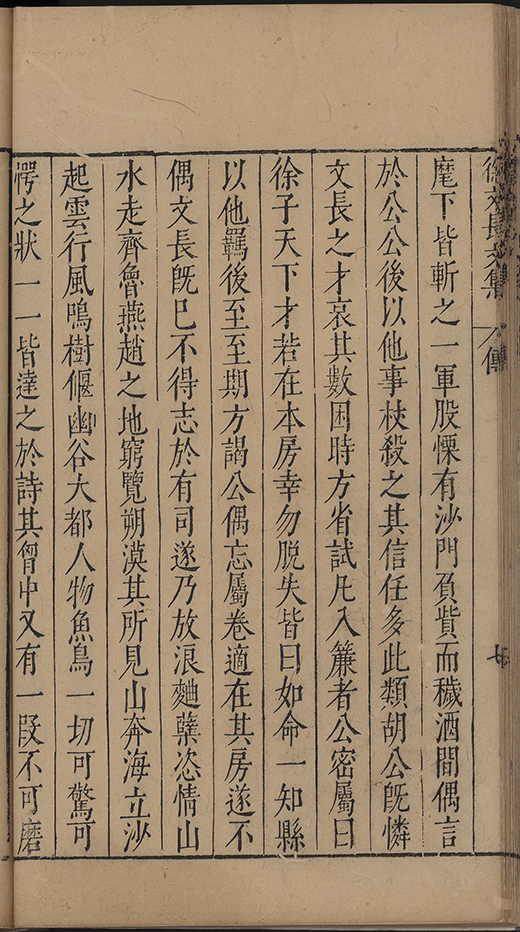 徐文長文集 傳 七
麾下皆斬之一軍股慄有沙門負貲而穢酒間偶言
於公公後以他事杖殺之其信任多此類胡公旣憐
文長之才哀其數困時方省試凡入簾者公密屬曰
徐子天下才若在本房幸勿脫失皆曰如命一知縣
以他羈後至至期方謁公偶忘屬卷適在其房遂不
偶文長旣已不得志於有司遂乃放浪麯蘖恣情山
水走齊魯燕趙之地窮覽朔漠其所見山奔海立沙
起雲行風鳴樹偃幽谷大都人物魚鳥一切可驚可
愕之狀一一皆達之於詩其胷中又有一段不可磨